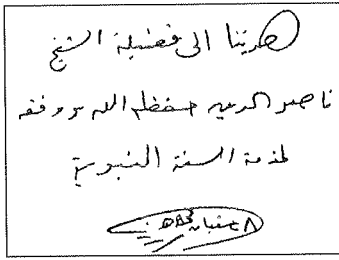 هديتنا الى فضيلة الشيخ
ناصر الدين حفظه الله ووفقه
لخدمة السنة النبوية